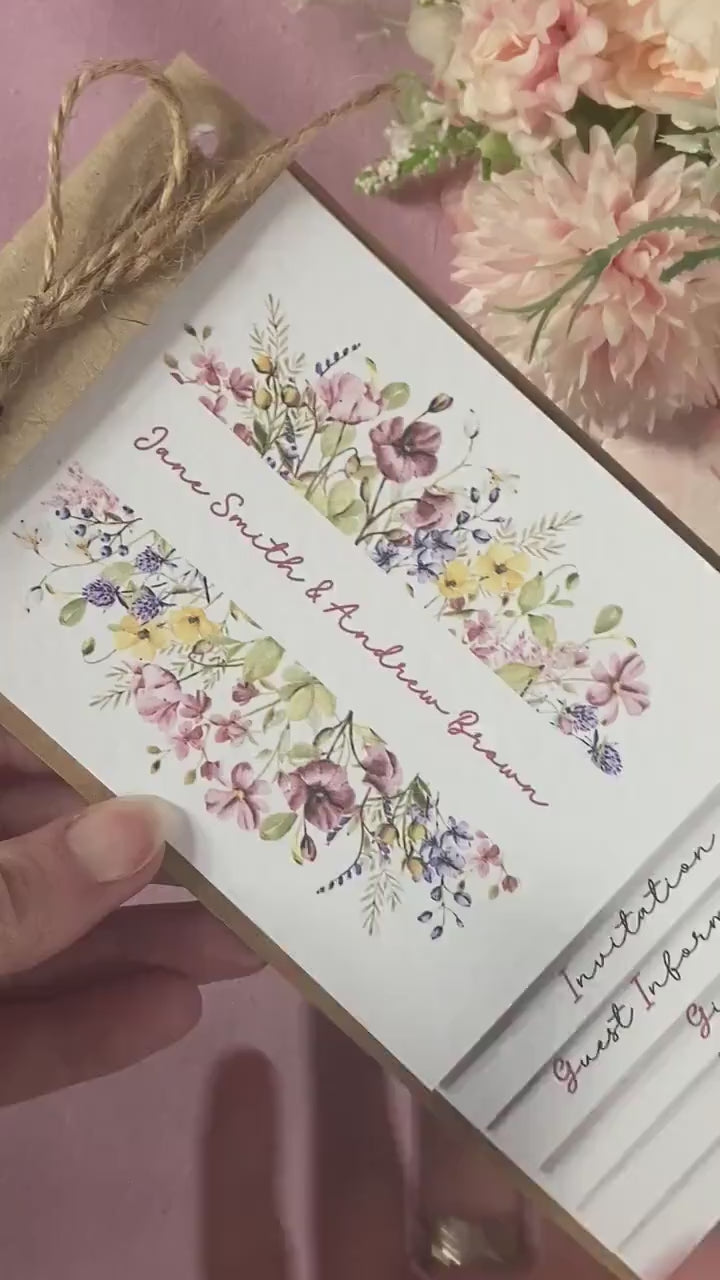 Jane Smith & Andrew Brown
Invitation
Guest